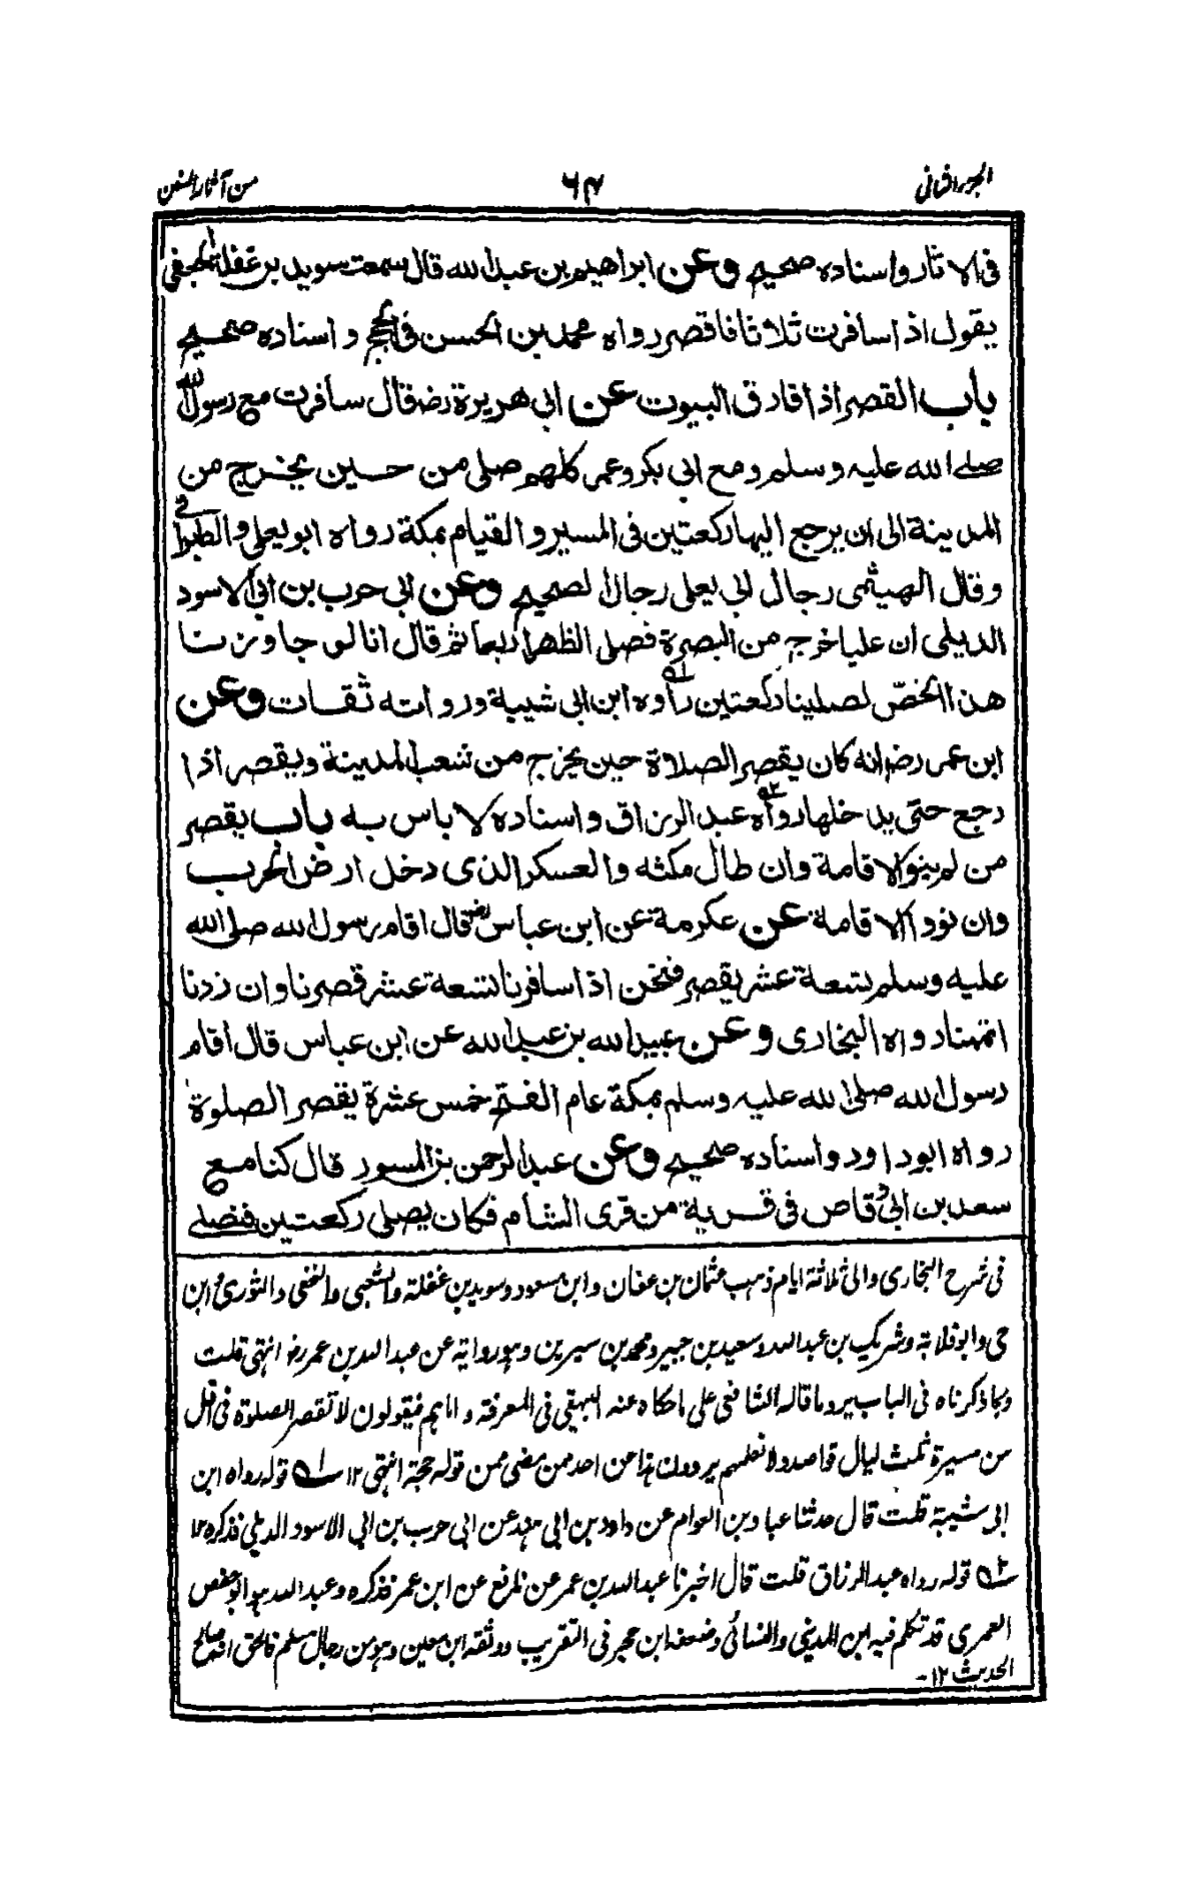 الجزء الثانی
۶۴
من آثار السنن
فی الاثار واسناده صحیح وعن ابراهیم بن عبد الله قال سمعت سوید بن غفلة الجعفی
یقول اذا سافرت ثلاثا فاقصر رواه محمد بن الحسن فی الحجج واسناده صحیح
باب القصر اذا فارق البیوت عن ابی هریرة رض قال سافرت مع رسول الله
صلے الله علیه وسلم ومع ابی بکر وعمر کلهم صلی من حسین یخرج من
المدینة الی ان یرجع الیها رکعتین فی المسیر والقیام بمکة رواه ابو یعلی والطبرانے
وقال الهیثمی رجال ابی یعلی رجال الصحیح وعن ابی حرب بن ابی الاسود
الدیلی ان علیا خرج من البصرة فصلی الظهر اربعا ثم قال انا لو جاوزنا
هذا الخصّ لصلینا رکعتین رواه ابن ابی شیبة ورواته ثقات وعن
ابن عمر رض انه کان یقصر الصلاة حین یخرج من شعب المدینة ویقصر اذا
رجع حتی یدخلها رواه عبد الرزاق واسناده لا باس به باب یقصر
من لم ینو الاقامة وان طال مکثه والعسکر الذی دخل ارض الحرب
وان نووا الاقامة عن عکرمة عن ابن عباس رض قال اقام رسول الله صلی الله
علیه وسلم تسعة عشر یقصر فنحن اذا سافرنا تسعة عشر قصرنا وان زدنا
اتممنا رواه البخاری وعن عبید الله بن عبد الله عن ابن عباس قال اقام
رسول الله صلی الله علیه وسلم بمکة عام الفتح خمس عشرة یقصر الصلوة
رواه ابو داود واسناده صحیح وعن عبد الرحمن بن المسور قال کنا مع
سعد بن ابی وقاص فی قریة من قری الشام فکان یصلی رکعتین فنصلے
فی شرح البخاری والی ثلاثة ایام ذهب عثمان بن عفان وابن مسعود وسوید بن غفلة والشعبی والنخعی والثوری وابن
حی وابو قلابة وشریک بن عبد الله وسعید بن جبیر ومحمد بن سیرین وهو روایة عن عبد الله بن عمر رض انتهی قلت
وبما ذکرناه فی الباب یرد ما قاله الشافعی علی ما حکاه عنه البیهقی فی المعرفة واما هم فیقولون لا تقصر الصلوة فی اقل
من مسیرة ثلث لیال قواصد ولا نعلمهم یروون هذا عن احد من مضی ممن قوله حجة انتهی ۱۲ ۱ قوله رواه ابن
ابی شیبة قلت قال حدثنا عباد بن العوام عن داود بن ابی هند عن ابی حرب بن ابی الاسود الدیلی فذکره ۱۲
۲ قوله رواه عبد الرزاق قلت قال اخبرنا عبد الله بن عمر عن نافع عن ابن عمر فذکره وعبد الله هو ابو حفص
العمری قد تکلم فیه ابن المدینی والنسائی وضعفه ابن حجر فی التقریب ووثقه ابن معین وهو من رجال مسلم فالحق انه صالح
الحدیث ۱۲-